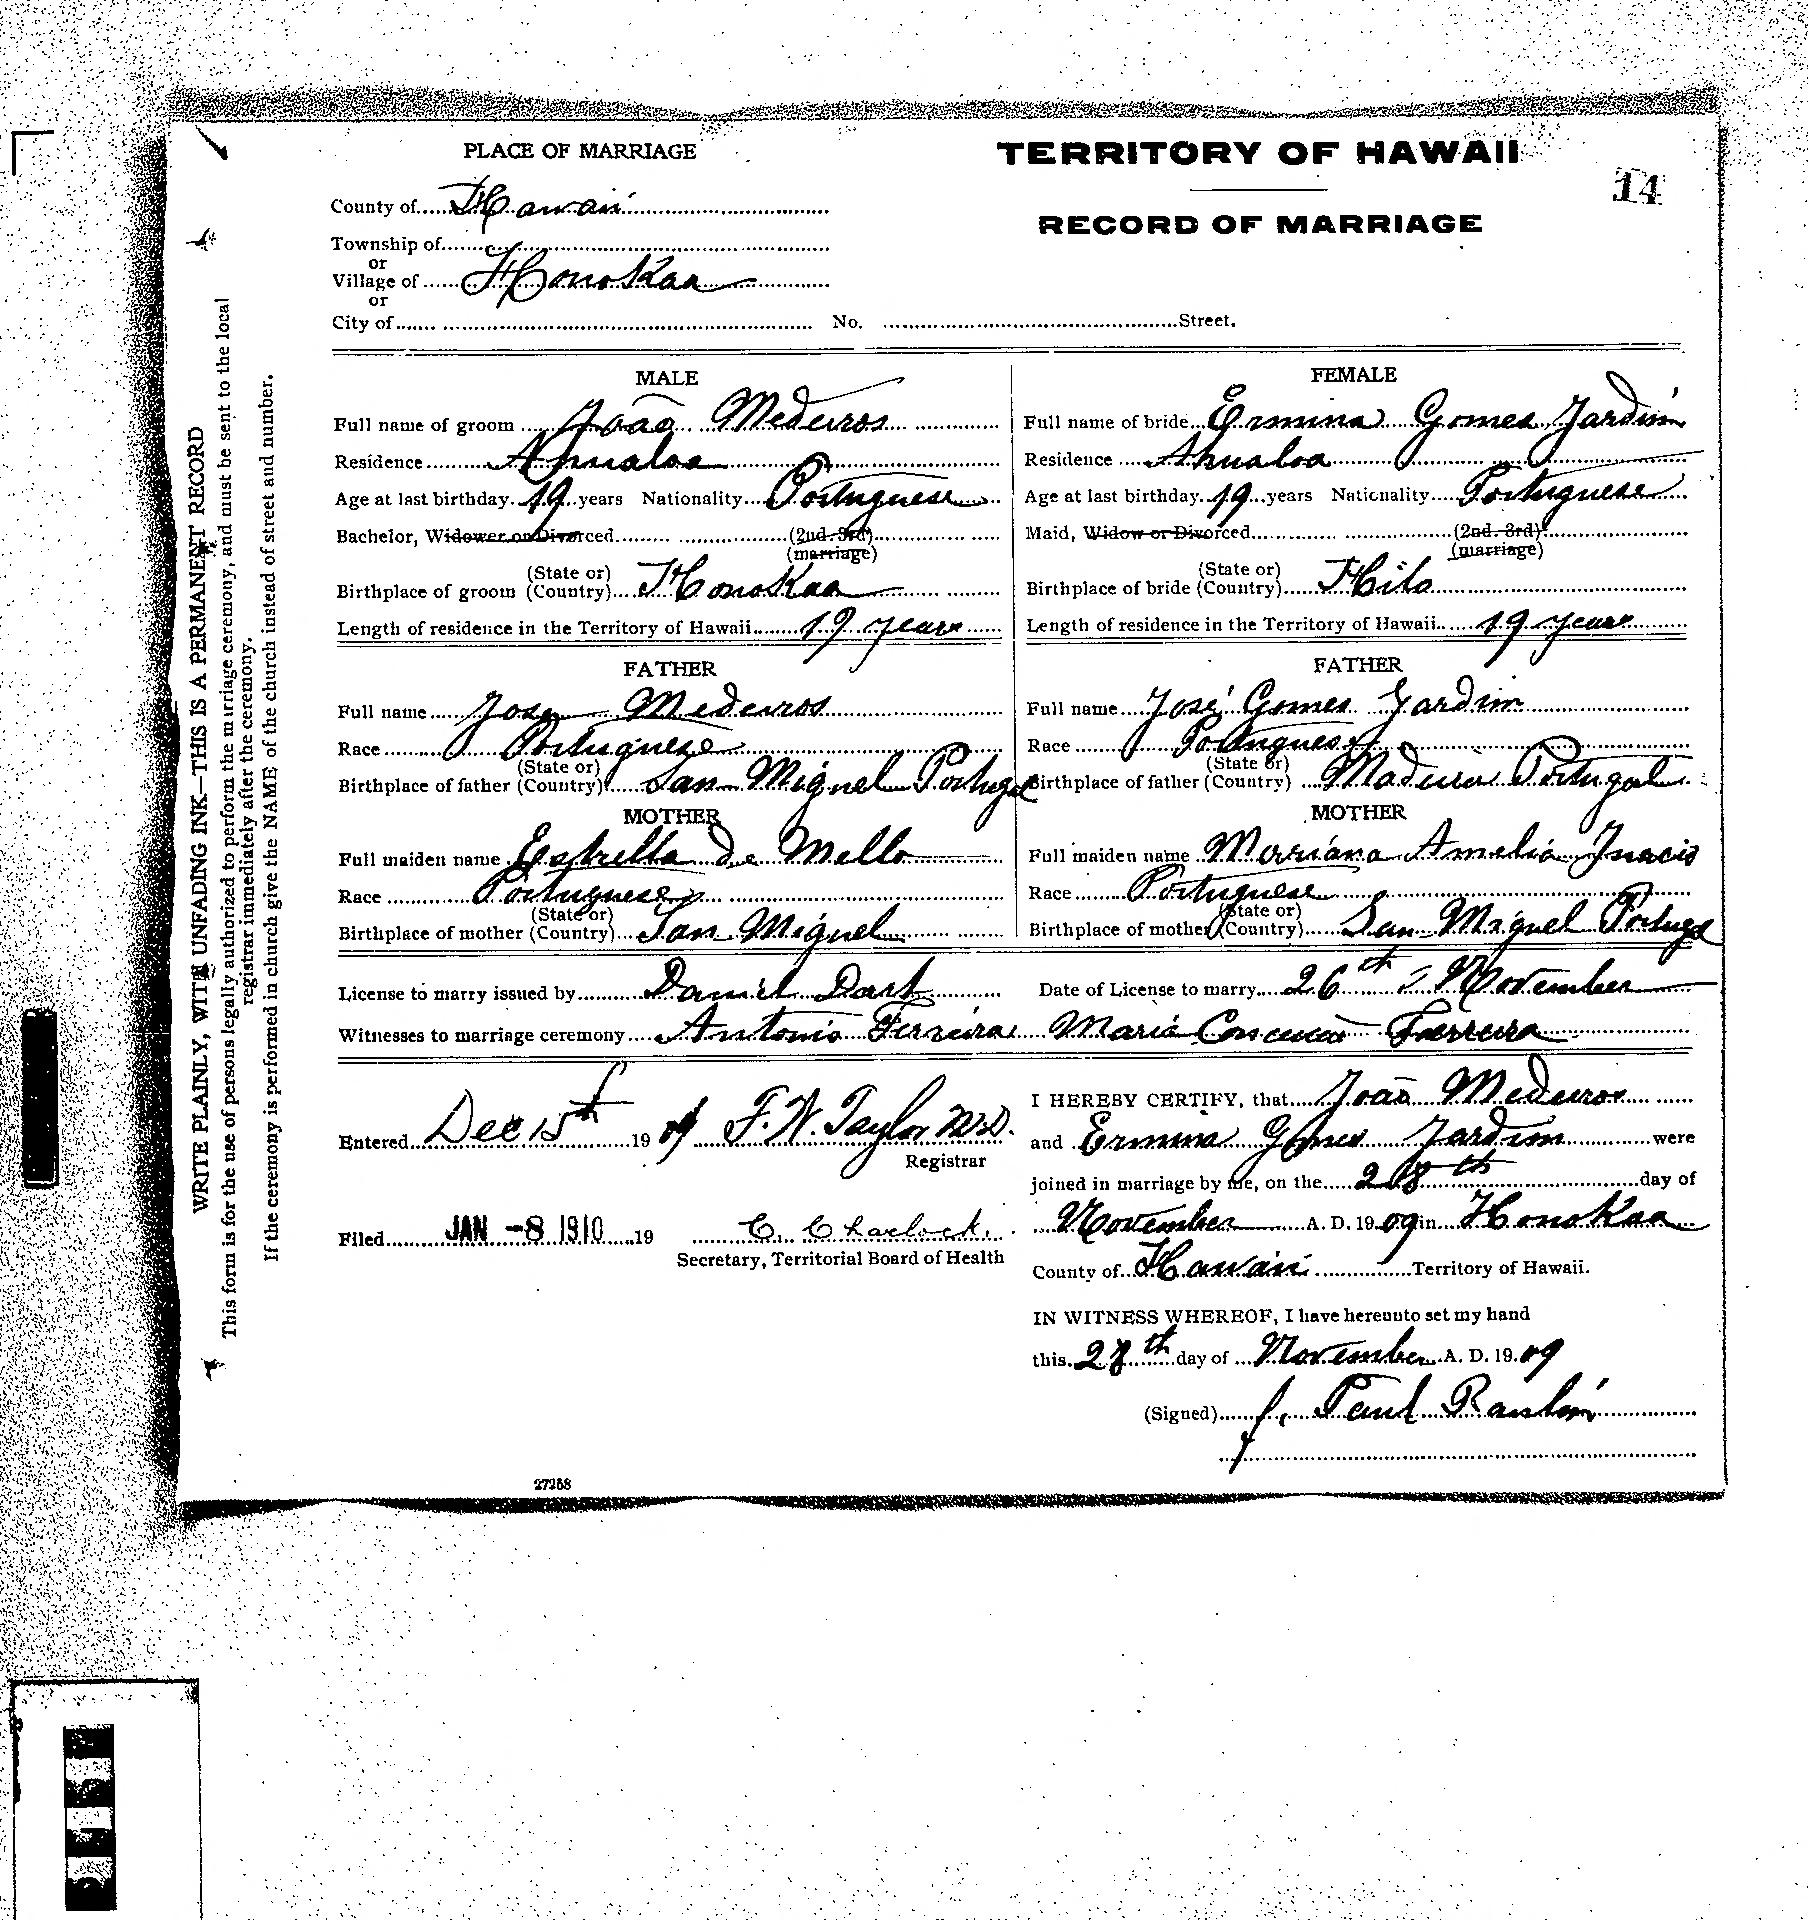 PLACE OF MARRIAGE
TERRITORY OF HAWAII
14
County of Hawaii
RECORD OF MARRIAGE
Township of
or
Village of Honokaa
or
City of No. Street.
MALE
Full name of groom João Medeiros
Residence Ahualoa
Age at last birthday 19 years Nationality Portuguese
Bachelor, Widower or Divorced (2nd 3rd)
(marriage)
(State or)
Birthplace of groom (Country) Honokaa
Length of residence in the Territory of Hawaii 19 years
FATHER
Full name Jose Medeiros
Race Portuguese
(State or)
Birthplace of father (Country) San Miguel Portugal
MOTHER
Full maiden name Estrella de Mello
Race Portuguese
(State or)
Birthplace of mother (Country) San Miguel
FEMALE
Full name of bride Ermina Gomes Jardim
Residence Ahualoa
Age at last birthday 19 years Nationality Portuguese
Maid, Widow or Divorced (2nd 3rd)
(marriage)
(State or)
Birthplace of bride (Country) Hilo
Length of residence in the Territory of Hawaii 19 years
FATHER
Full name José Gomes Jardim
Race Portuguese
(State or)
Birthplace of father (Country) Madeira Portugal
MOTHER
Full maiden name Mariana Amelia Inacio
Race Portuguese
(State or)
Birthplace of mother (Country) San Miguel Portugal
License to marry issued by Daniel Dart Date of License to marry 26th November
Witnesses to marriage ceremony Antonio Ferreira Maria Ferreira
Entered Dec 15th 1909 F. W. Taylor M.D.
Registrar
Filed JAN -8 1910 19 C. Charlock.
Secretary, Territorial Board of Health
I HEREBY CERTIFY, that João Medeiros
and Ermina Gomes Jardim were
joined in marriage by me, on the 28th day of
November A. D. 1909 in Honokaa
County of Hawaii Territory of Hawaii.
IN WITNESS WHEREOF, I have hereunto set my hand
this 28th day of November A. D. 1909
(Signed) J. Paul
27268
WRITE PLAINLY, WITH UNFADING INK—THIS IS A PERMANENT RECORD
This form is for the use of persons legally authorized to perform the marriage ceremony, and must be sent to the local
registrar immediately after the ceremony.
If the ceremony is performed in church give the NAME of the church instead of street and number.